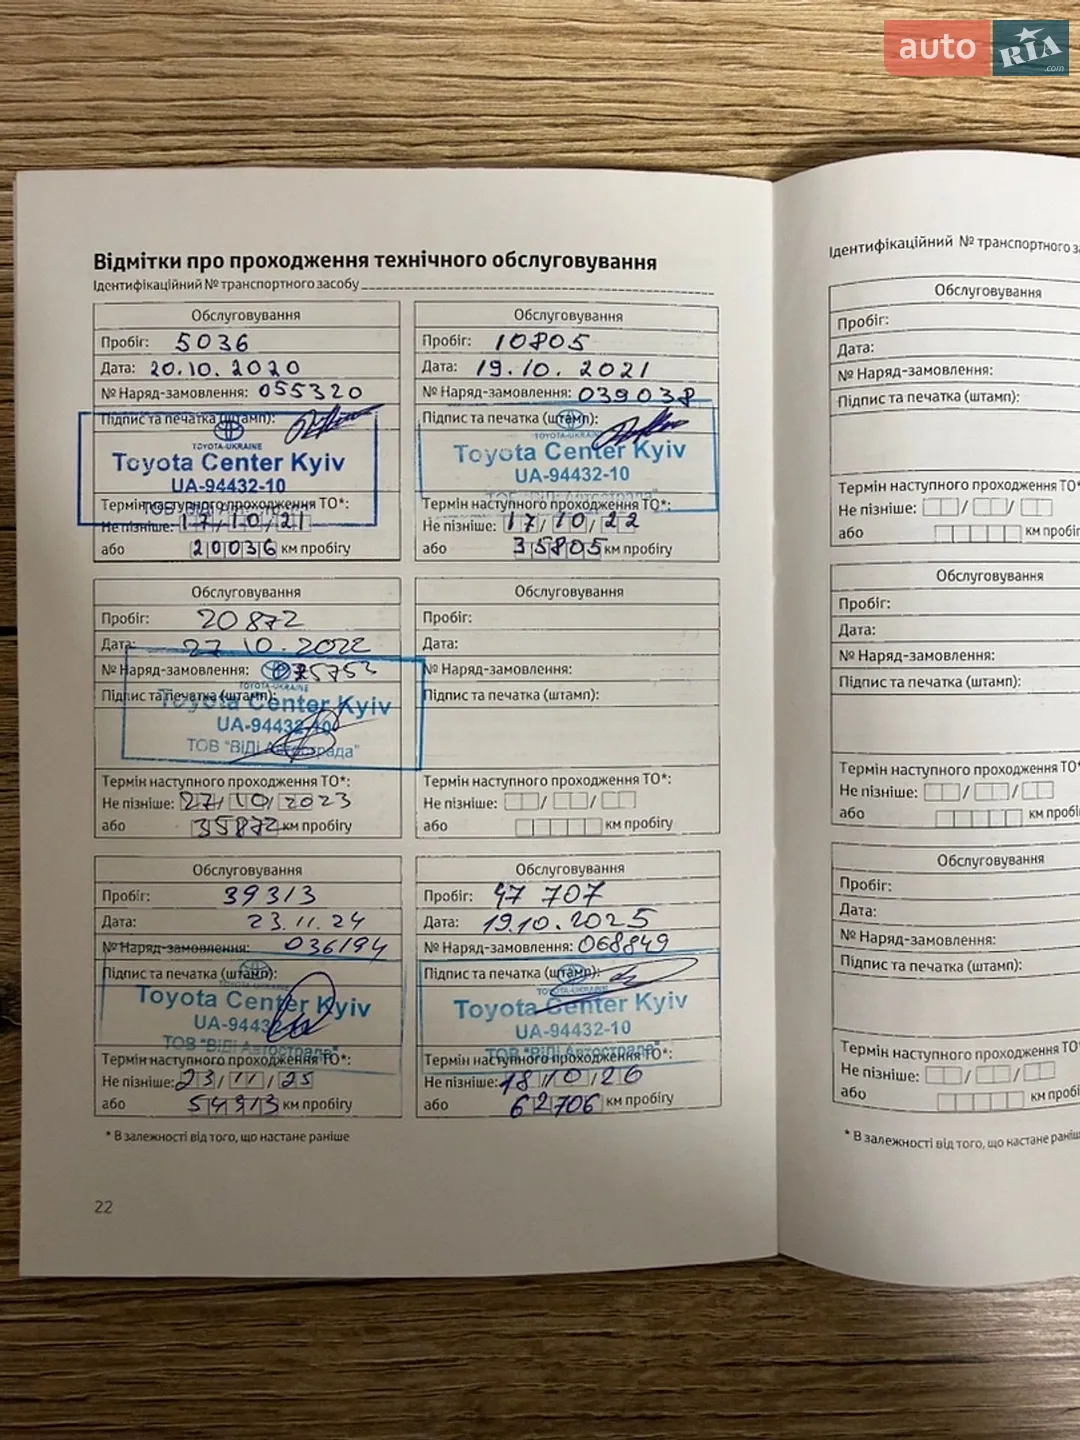 auto RIA .com
Відмітки про проходження технічного обслуговування
Ідентифікаційний № транспортного засобу
Обслуговування
Пробіг: 5036
Дата: 20.10.2020
№ Наряд-замовлення: 055320
Підпис та печатка (штамп):
TOYOTA-UKRAINE
Toyota Center Kyiv
UA-94432-10
Термін наступного проходження ТО*:
Не пізніше: 17/10/21
або 20036 км пробігу
Обслуговування
Пробіг: 10805
Дата: 19.10.2021
№ Наряд-замовлення: 039038
Підпис та печатка (штамп):
TOYOTA-UKRAINE
Toyota Center Kyiv
UA-94432-10
ТОВ "ВІДІ Автострада"
Термін наступного проходження ТО*:
Не пізніше: 17/10/22
або 35805 км пробігу
Обслуговування
Пробіг: 20872
Дата: 27.10.2022
№ Наряд-замовлення: 075753
Підпис та печатка (штамп):
TOYOTA-UKRAINE
Toyota Center Kyiv
UA-94432-10
ТОВ "ВІДІ Автострада"
Термін наступного проходження ТО*:
Не пізніше: 27/10/2023
або 35872 км пробігу
Обслуговування
Пробіг:
Дата:
№ Наряд-замовлення:
Підпис та печатка (штамп):
Термін наступного проходження ТО*:
Не пізніше: / /
або км пробігу
Обслуговування
Пробіг: 39313
Дата: 23.11.24
№ Наряд-замовлення: 036194
Підпис та печатка (штамп):
TOYOTA-UKRAINE
Toyota Center Kyiv
UA-94432
ТОВ "ВІДІ Автострада"
Термін наступного проходження ТО*:
Не пізніше: 23/11/25
або 54313 км пробігу
Обслуговування
Пробіг: 47 707
Дата: 19.10.2025
№ Наряд-замовлення: 068849
Підпис та печатка (штамп):
TOYOTA-UKRAINE
Toyota Center Kyiv
UA-94432-10
ТОВ "ВІДІ Автострада"
Термін наступного проходження ТО*:
Не пізніше: 18/10/26
або 62706 км пробігу
* В залежності від того, що настане раніше
22
Ідентифікаційний № транспортного
Обслуговування
Пробіг:
Дата:
№ Наряд-замовлення:
Підпис та печатка (штамп):
Термін наступного проходження ТО*
Не пізніше: / /
або км
Обслуговування
Пробіг:
Дата:
№ Наряд-замовлення:
Підпис та печатка (штамп):
Термін наступного проходження ТО*
Не пізніше: / /
або км
Обслуговування
Пробіг:
Дата:
№ Наряд-замовлення:
Підпис та печатка (штамп):
Термін наступного проходження ТО*
Не пізніше: / /
або км
* В залежності від того, що настане